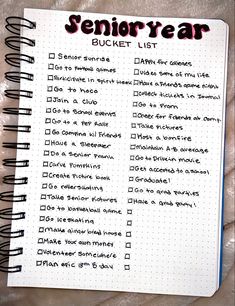 Senior Year
BUCKET LIST
Senior sunrise
Go to football games
Participate in spirit week
Go to hoco
Join a club
Go to school events
Go to a pep rally
Go camping w/ friends
Have a sleepover
Do a senior prank
Carve Pumpkins
Create Picture book
Go rollerskating
Take senior pictures
Go to basketball game
Go iceskating
Make gingerbread house
Make your own money
Volunteer somewhere
Plan epic 18th b-day
Apply for colleges
Video some of my life
Have a friends game night
Collect tickets in journal
Go to Prom
Cheer for friends at comp.
Take pictures
Host a bonfire
Maintain A-B average
Go to drive in movie
Get accepted to a school
Graduate!
Go to grad parties
Have a grad party!